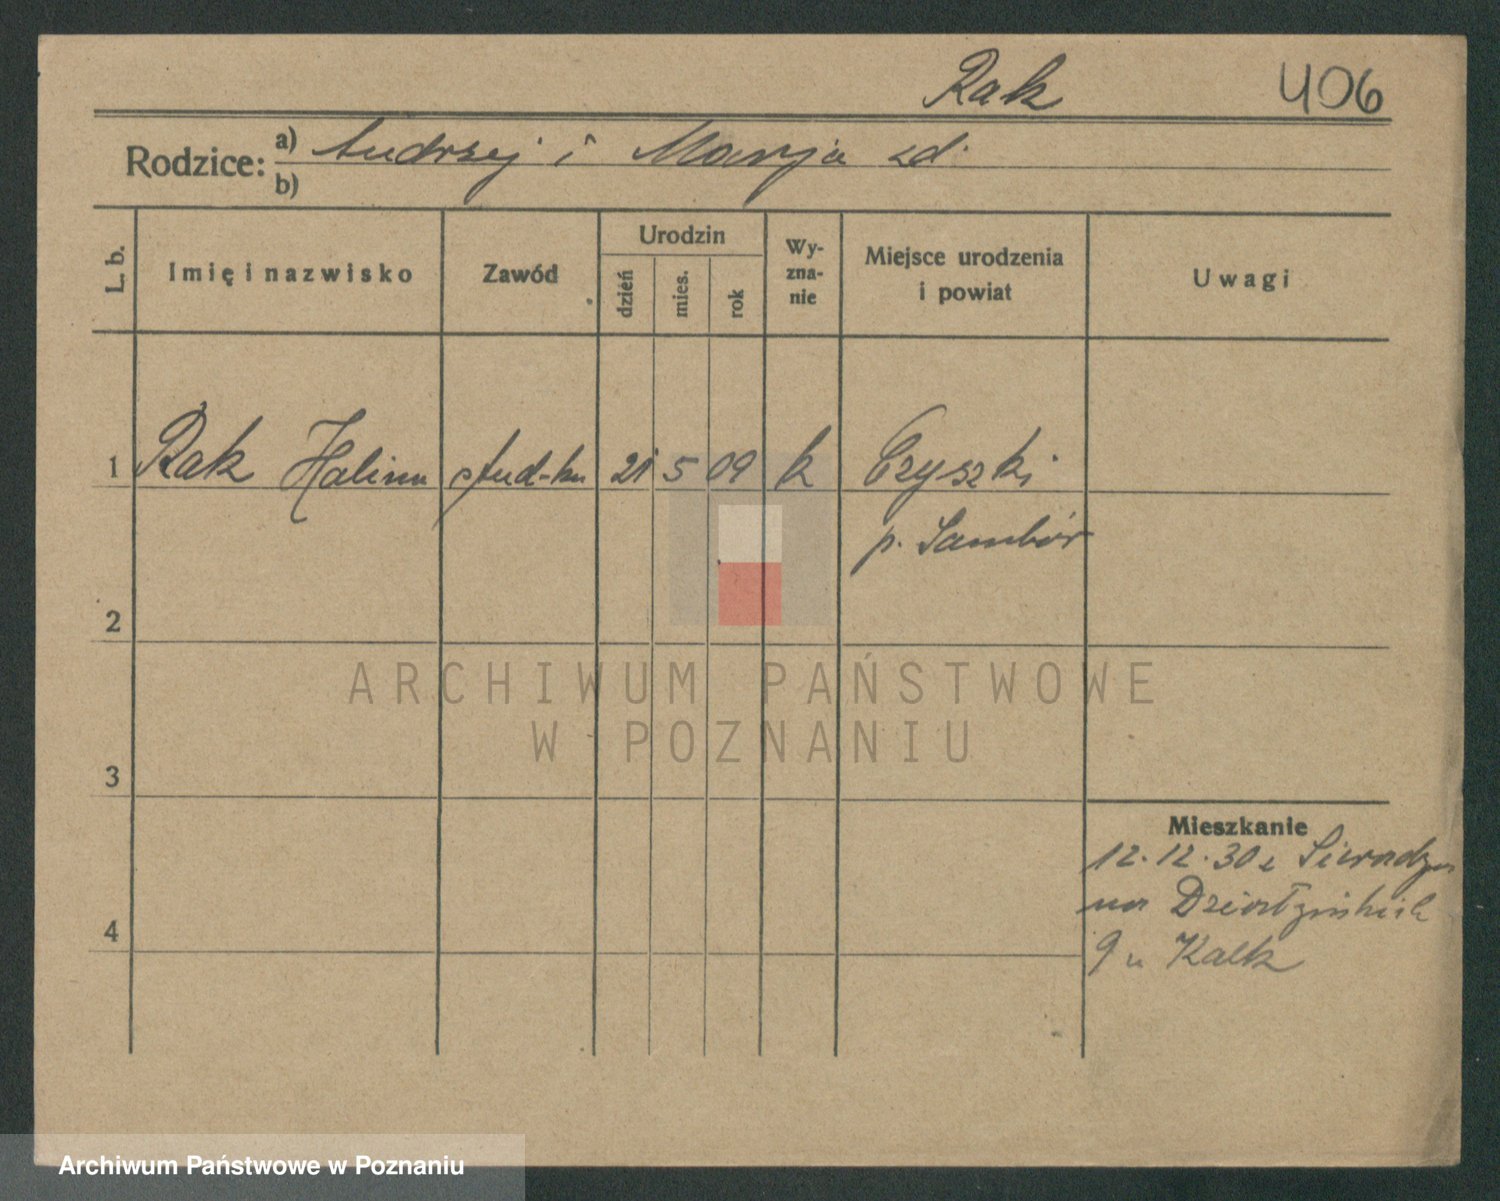 Rak 406
Rodzice: a) Andrzej i Marja zd.
b)
L. b. Imię i nazwisko Zawód Urodzin dzień mies. rok Wy-zna-nie Miejsce urodzenia i powiat Uwagi
1 Rak Halina stud-ka 21 5 09 k Czyszki
p. Sambór
2
3
4
Mieszkanie
12.12.30 z
na
9 u Kalk
ARCHIWUM PAŃSTWOWE
W POZNANIU
Archiwum Państwowe w Poznaniu